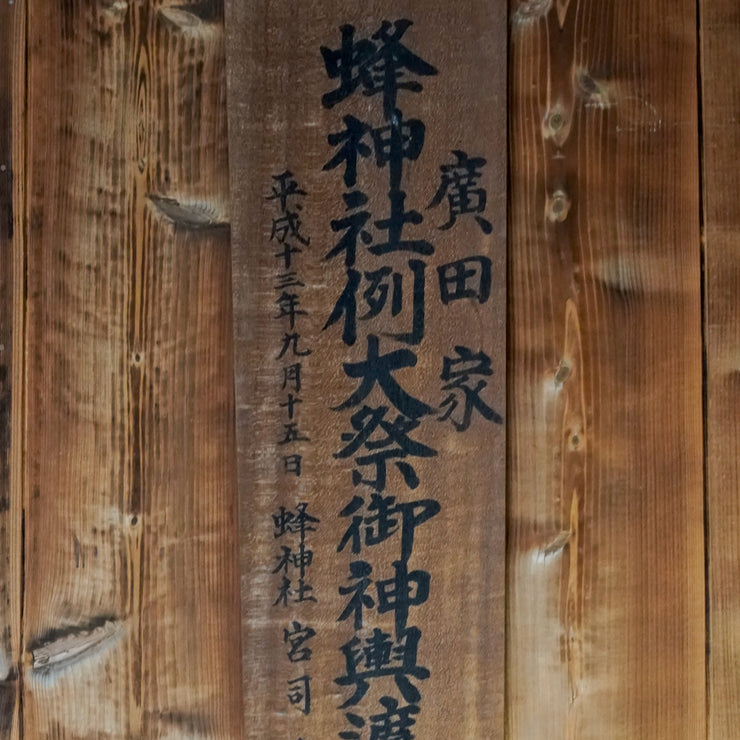 廣田家
蜂神社例大祭御神輿渡
平成十三年九月十五日 蜂神社 宮司